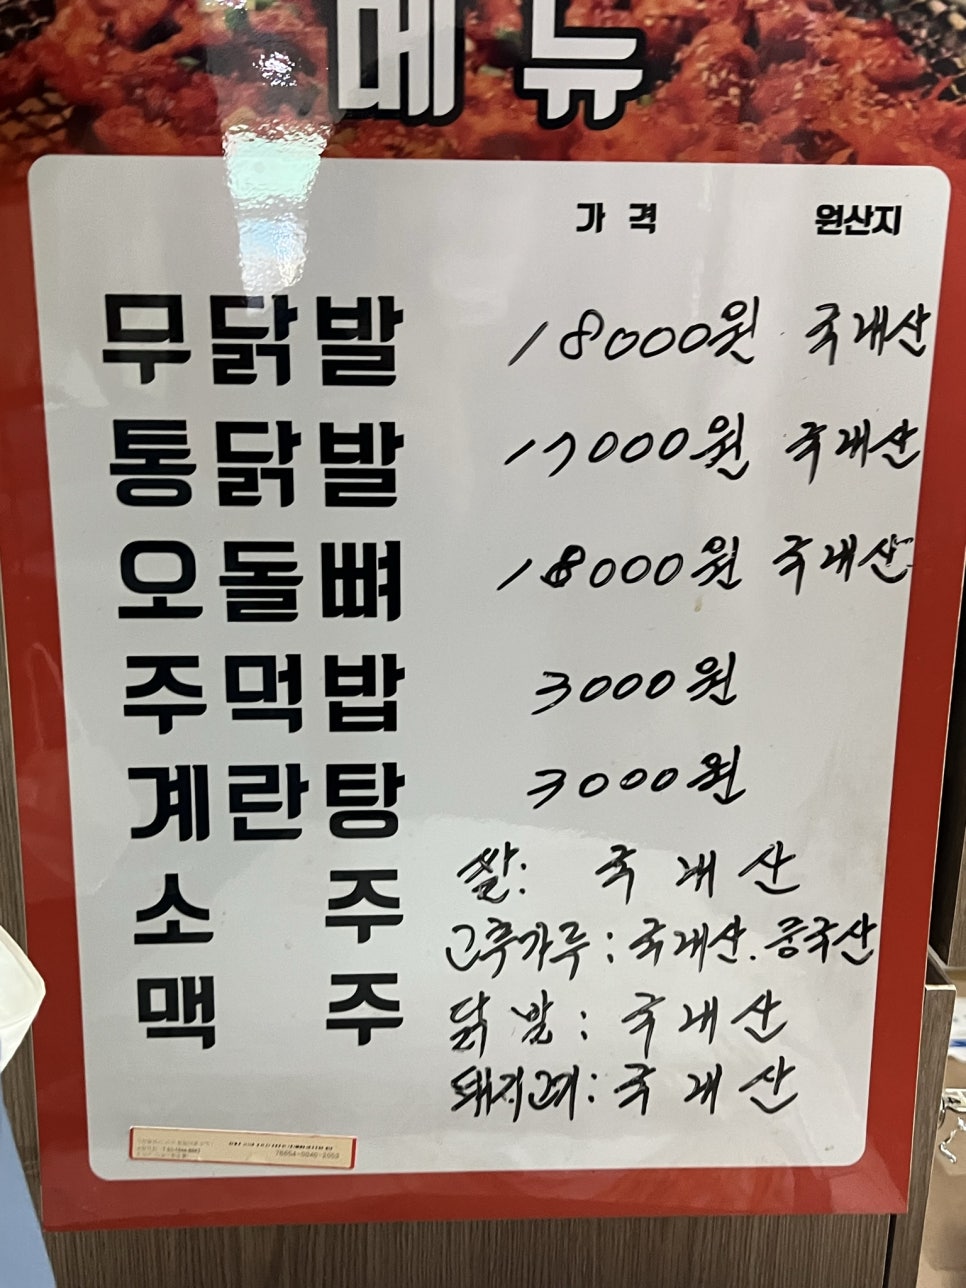 메뉴
가격 원산지
무닭발 18000원 국내산
통닭발 17000원 국내산
오돌뼈 18000원 국내산
주먹밥 3000원
계란탕 3000원
소주 쌀: 국내산
고추가루: 국내산. 중국산
맥주 닭발: 국내산
돼지고기: 국내산